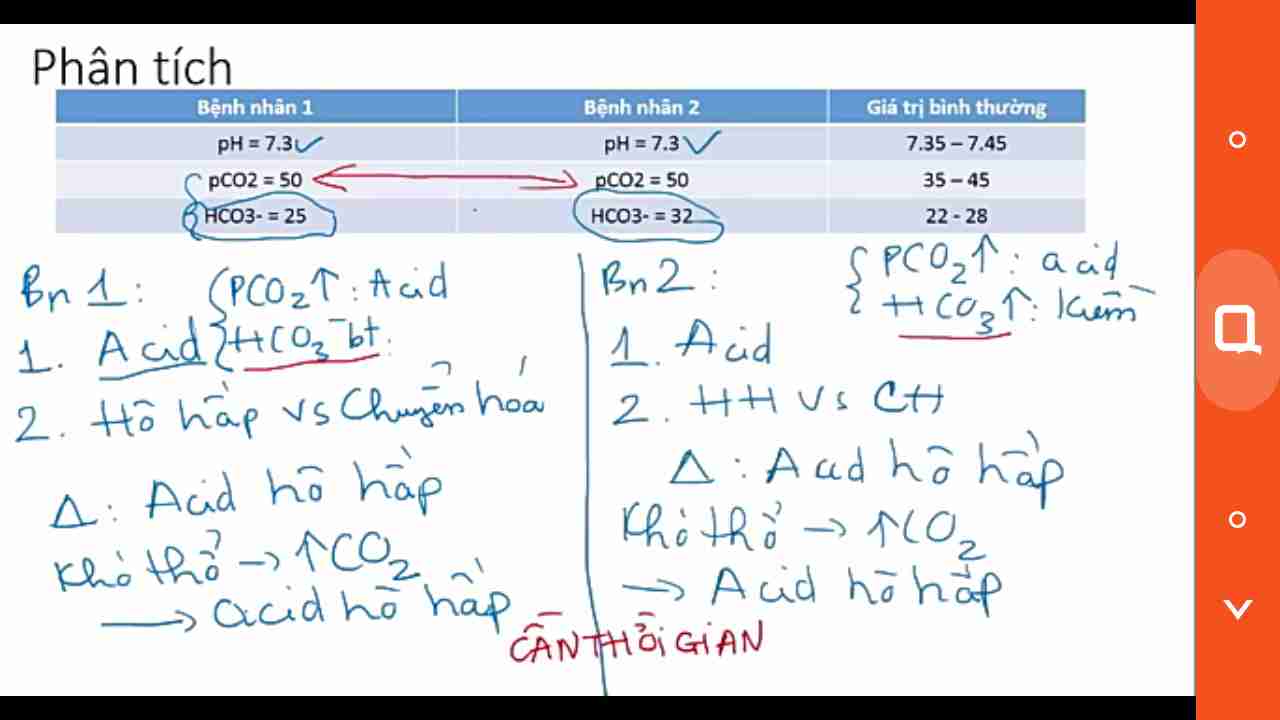 Phân tích
Bệnh nhân 1 Bệnh nhân 2 Giá trị bình thường
pH = 7.3 pH = 7.3 7.35 – 7.45
pCO2 = 50 pCO2 = 50 35 – 45
HCO3- = 25 HCO3- = 32 22 - 28
Bn 1: PCO₂↑: Acid
1. Acid HCO₃⁻ bt.
2. Hô hấp vs Chuyển hóa
Δ: Acid hô hấp
Khó thở → ↑CO₂
→ acid hô hấp
Bn 2: PCO₂↑: acid
HCO₃↑: Kiềm
1. Acid
2. HH vs CH
Δ: Acid hô hấp
Khó thở → ↑CO₂
→ Acid hô hấp
CẦN THỜI GIAN